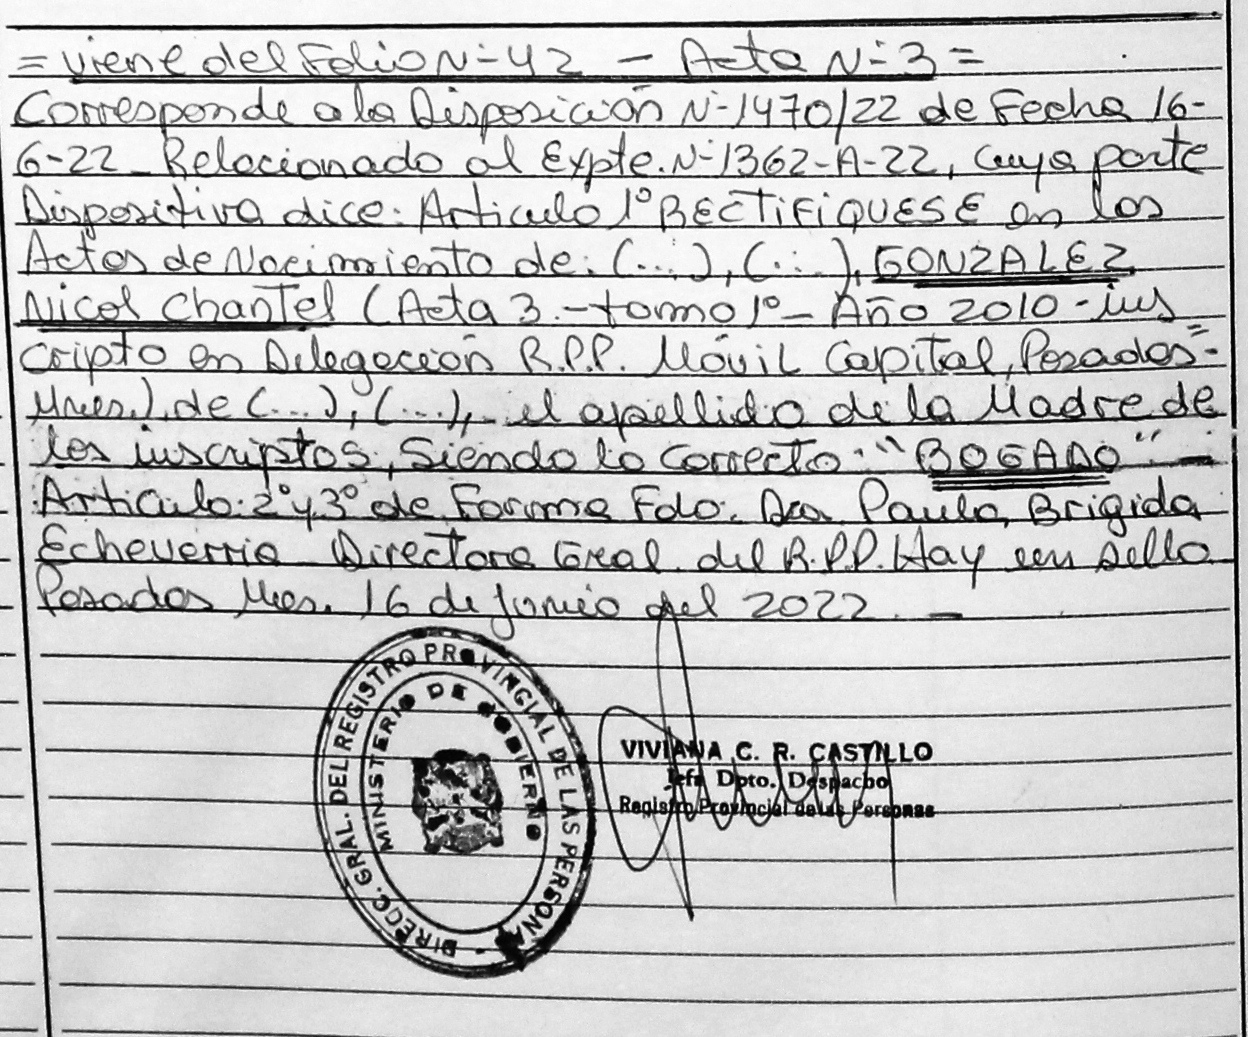 = Viene del Folio N-42 - Acta N-3 =
Corresponde a la Disposición N-1470/22 de Fecha 16-
6-22_ Relacionado al Expte. N-1362-A-22, cuya parte
Dispositiva dice: Articulo 1º RECTIFIQUESE en las
Actas de Nacimiento de: (...), (...), GONZALEZ
Nicol Chantel (Acta 3.- tomo 1º - Año 2010 - ins
cripto en Delegación R.P.P. Móvil Capital, Posadas=
Mnes.), de (...), (...), el apellido de la Madre de
los inscriptos, Siendo lo correcto: "BOGADO" -
Articulo: 2º y 3º de Forma Fdo. Dra Paula, Brigida
Echeverria Directora Gral. del R.P.P. Hay un Sello
Posadas Mnes. 16 de junio del 2022. -
DIRECC. GRAL. DEL REGISTRO PROVINCIAL DE LAS PERSONAS
MINISTERIO DE GOBIERNO
VIVIANA C. R. CASTILLO
Jefa Dpto. Despacho
Registro Provincial de las Personas